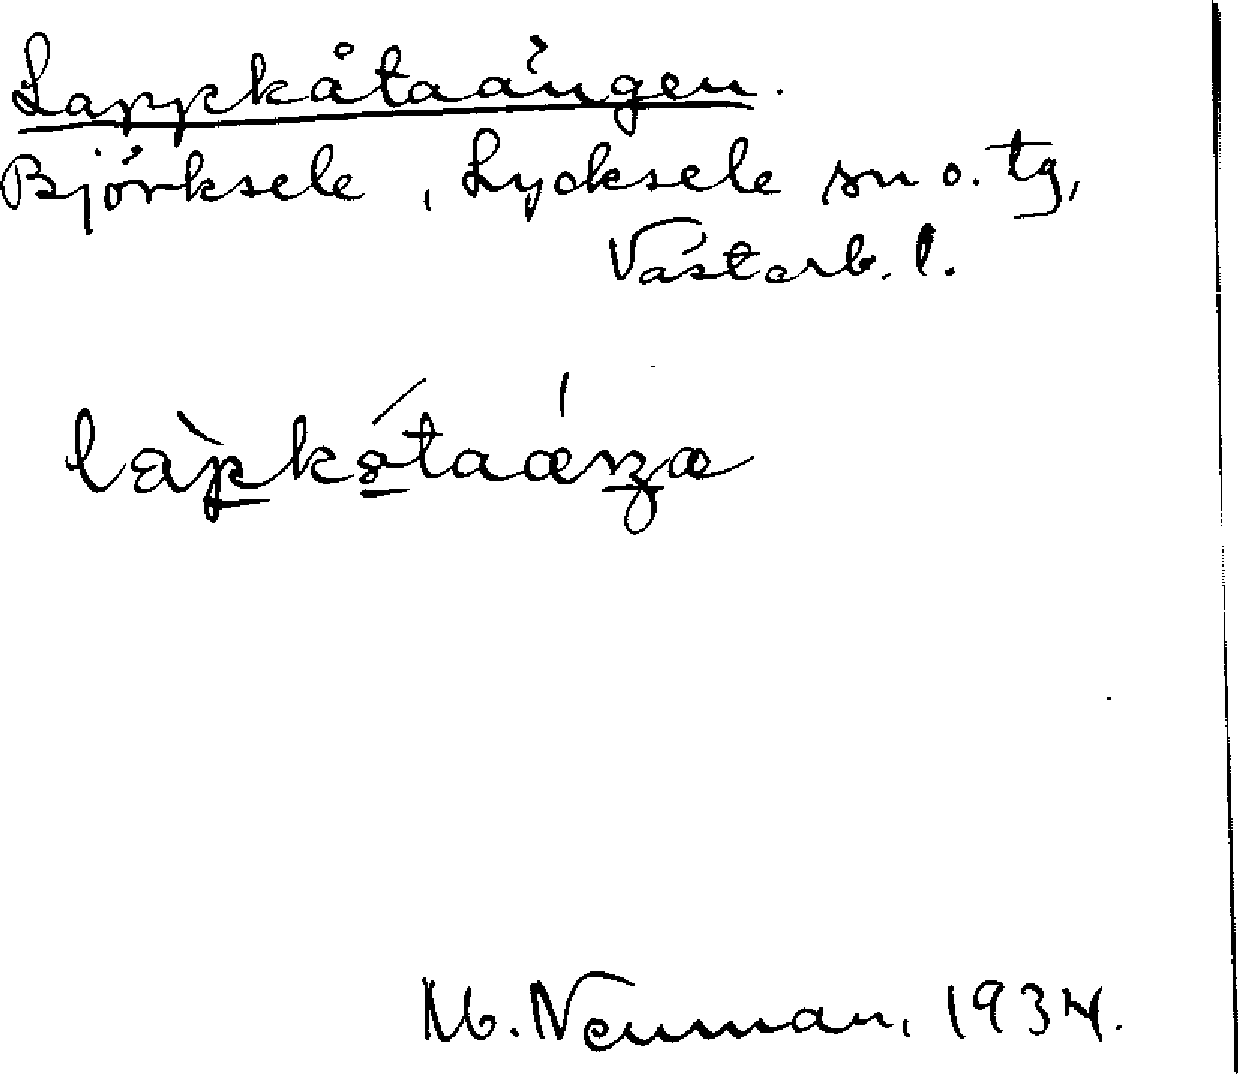 Lappkåtaängen.
Björksele, Lycksele sn o. tg,
Västerb. l.
M. Neuman, 1934.